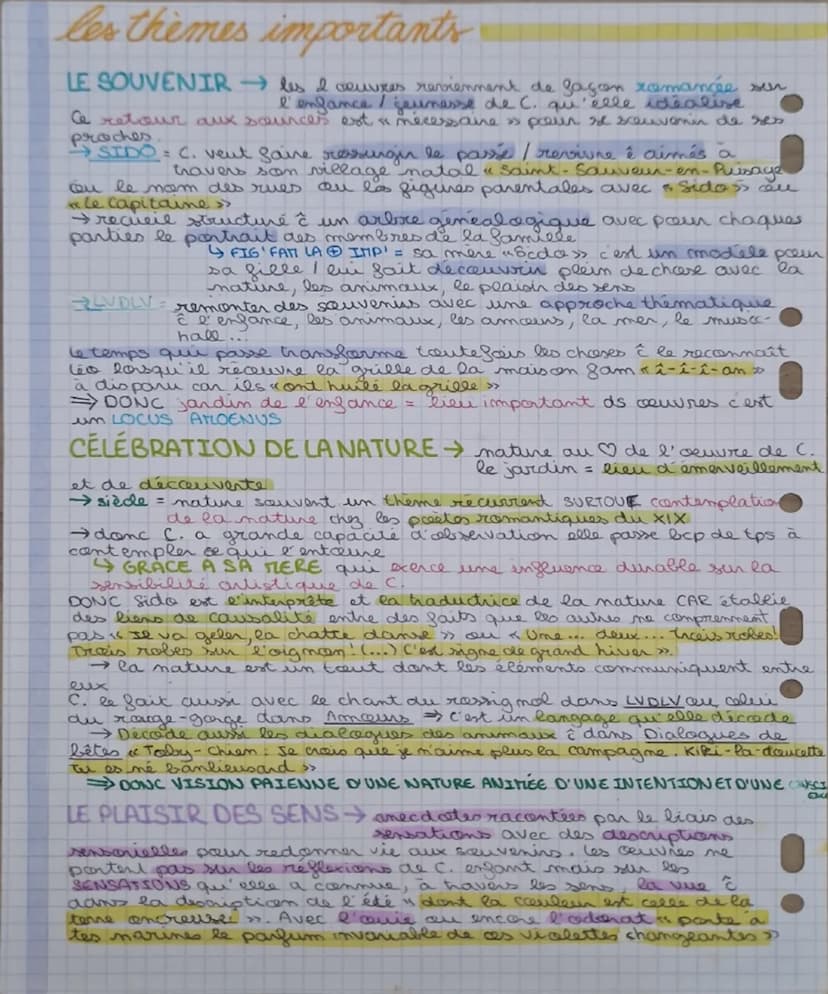 les thèmes importants
LE SOUVENIR → les 2 oeuvres reviennent de façon romancée sur
l'enfance / jeunesse de C. qu'elle idéalise
Ce retour aux sources est « nécessaire » pour se souvenir de ses
proches.
→ SIDO = C. veut faire ressurgir le passé / revivre ê aimés à
travers son village natal « Saint-Sauveur-en-Puisaye
ou le nom des rues ou les figures parentales avec « Sido » ou
« le Capitaine »
→ recueil structuré ĉ un arbre généalogique avec pour chaques
parties le portrait des membres de la famille
↳ FIG' FAM LA ⊕ IMP' = sa mère « Sido » c'est un modèle pour
sa fille / lui fait découvrir plein de chose avec la
nature, les animaux, le plaisir des sens
→ LVDLV = remonter des souvenirs avec une approche thématique
ĉ l'enfance, les animaux, les amours, la mer, le music-
hall...
Le temps qui passe transforme toutefois les choses ĉ le reconnaît
Léo lorsqu'il rouvre la grille de la maison fam « î-î-î-an »
a disparu car ils « ont huilé la grille »
⇒ DONC jardin de l'enfance = lieu important ds oeuvres c'est
un LOCUS AMOENUS
CÉLÉBRATION DE LA NATURE → nature au ♡ de l'oeuvre de C.
le jardin = lieu d'émerveillement
et de découverte
→ siècle = nature souvent un thème récurrent SURTOUT contemplation
de la nature chez les poètes romantiques du XIX
→ donc C. a grande capacité d'observation elle passe bcp de tps à
contempler ce qui l'entoure
↳ GRACE A SA MERE qui exerce une influence durable sur la
sensibilité artistique de C.
DONC Sido est l'interprète et la traductrice de la nature CAR établie
des liens de causalité entre des faits que les autres ne comprennent
pas « Il va geler, la chatte danse » ou « Une... deux... trois robes!
Trois robes sur l'oignon! (...) C'est signe de grand hiver ».
→ la nature est un tout dont les éléments communiquent entre
eux
C. le fait aussi avec le chant du rossignol dans LVDLV ou celui
du rouge-gorge dans Amours ⇒ c'est un langage qu'elle décode
→ Décode aussi les dialogues des animaux ĉ dans Dialogues de
bêtes « Toby-Chien : Je crois que je n'aime plus la campagne. Kiki-la-doucette
Tu es né banlieusard »
⇒ DONC VISION PAIENNE D'UNE NATURE ANIMÉE D'UNE INTENTION ET D'UNE
LE PLAISIR DES SENS → anecdotes racontées par le biais des
sensations avec des descriptions
sensorielles pour redonner vie aux souvenirs. Les oeuvres ne
portent pas sur les réflexions de C. enfant mais sur les
SENSATIONS qu'elle a connue, à travers les sens, la vue ĉ
dans la description de l'été « dont la couleur est celle de la
terre ». Avec l'ouïe ou encore l'odorat « porte à
tes narines le parfum invariable de ces violettes changeantes »